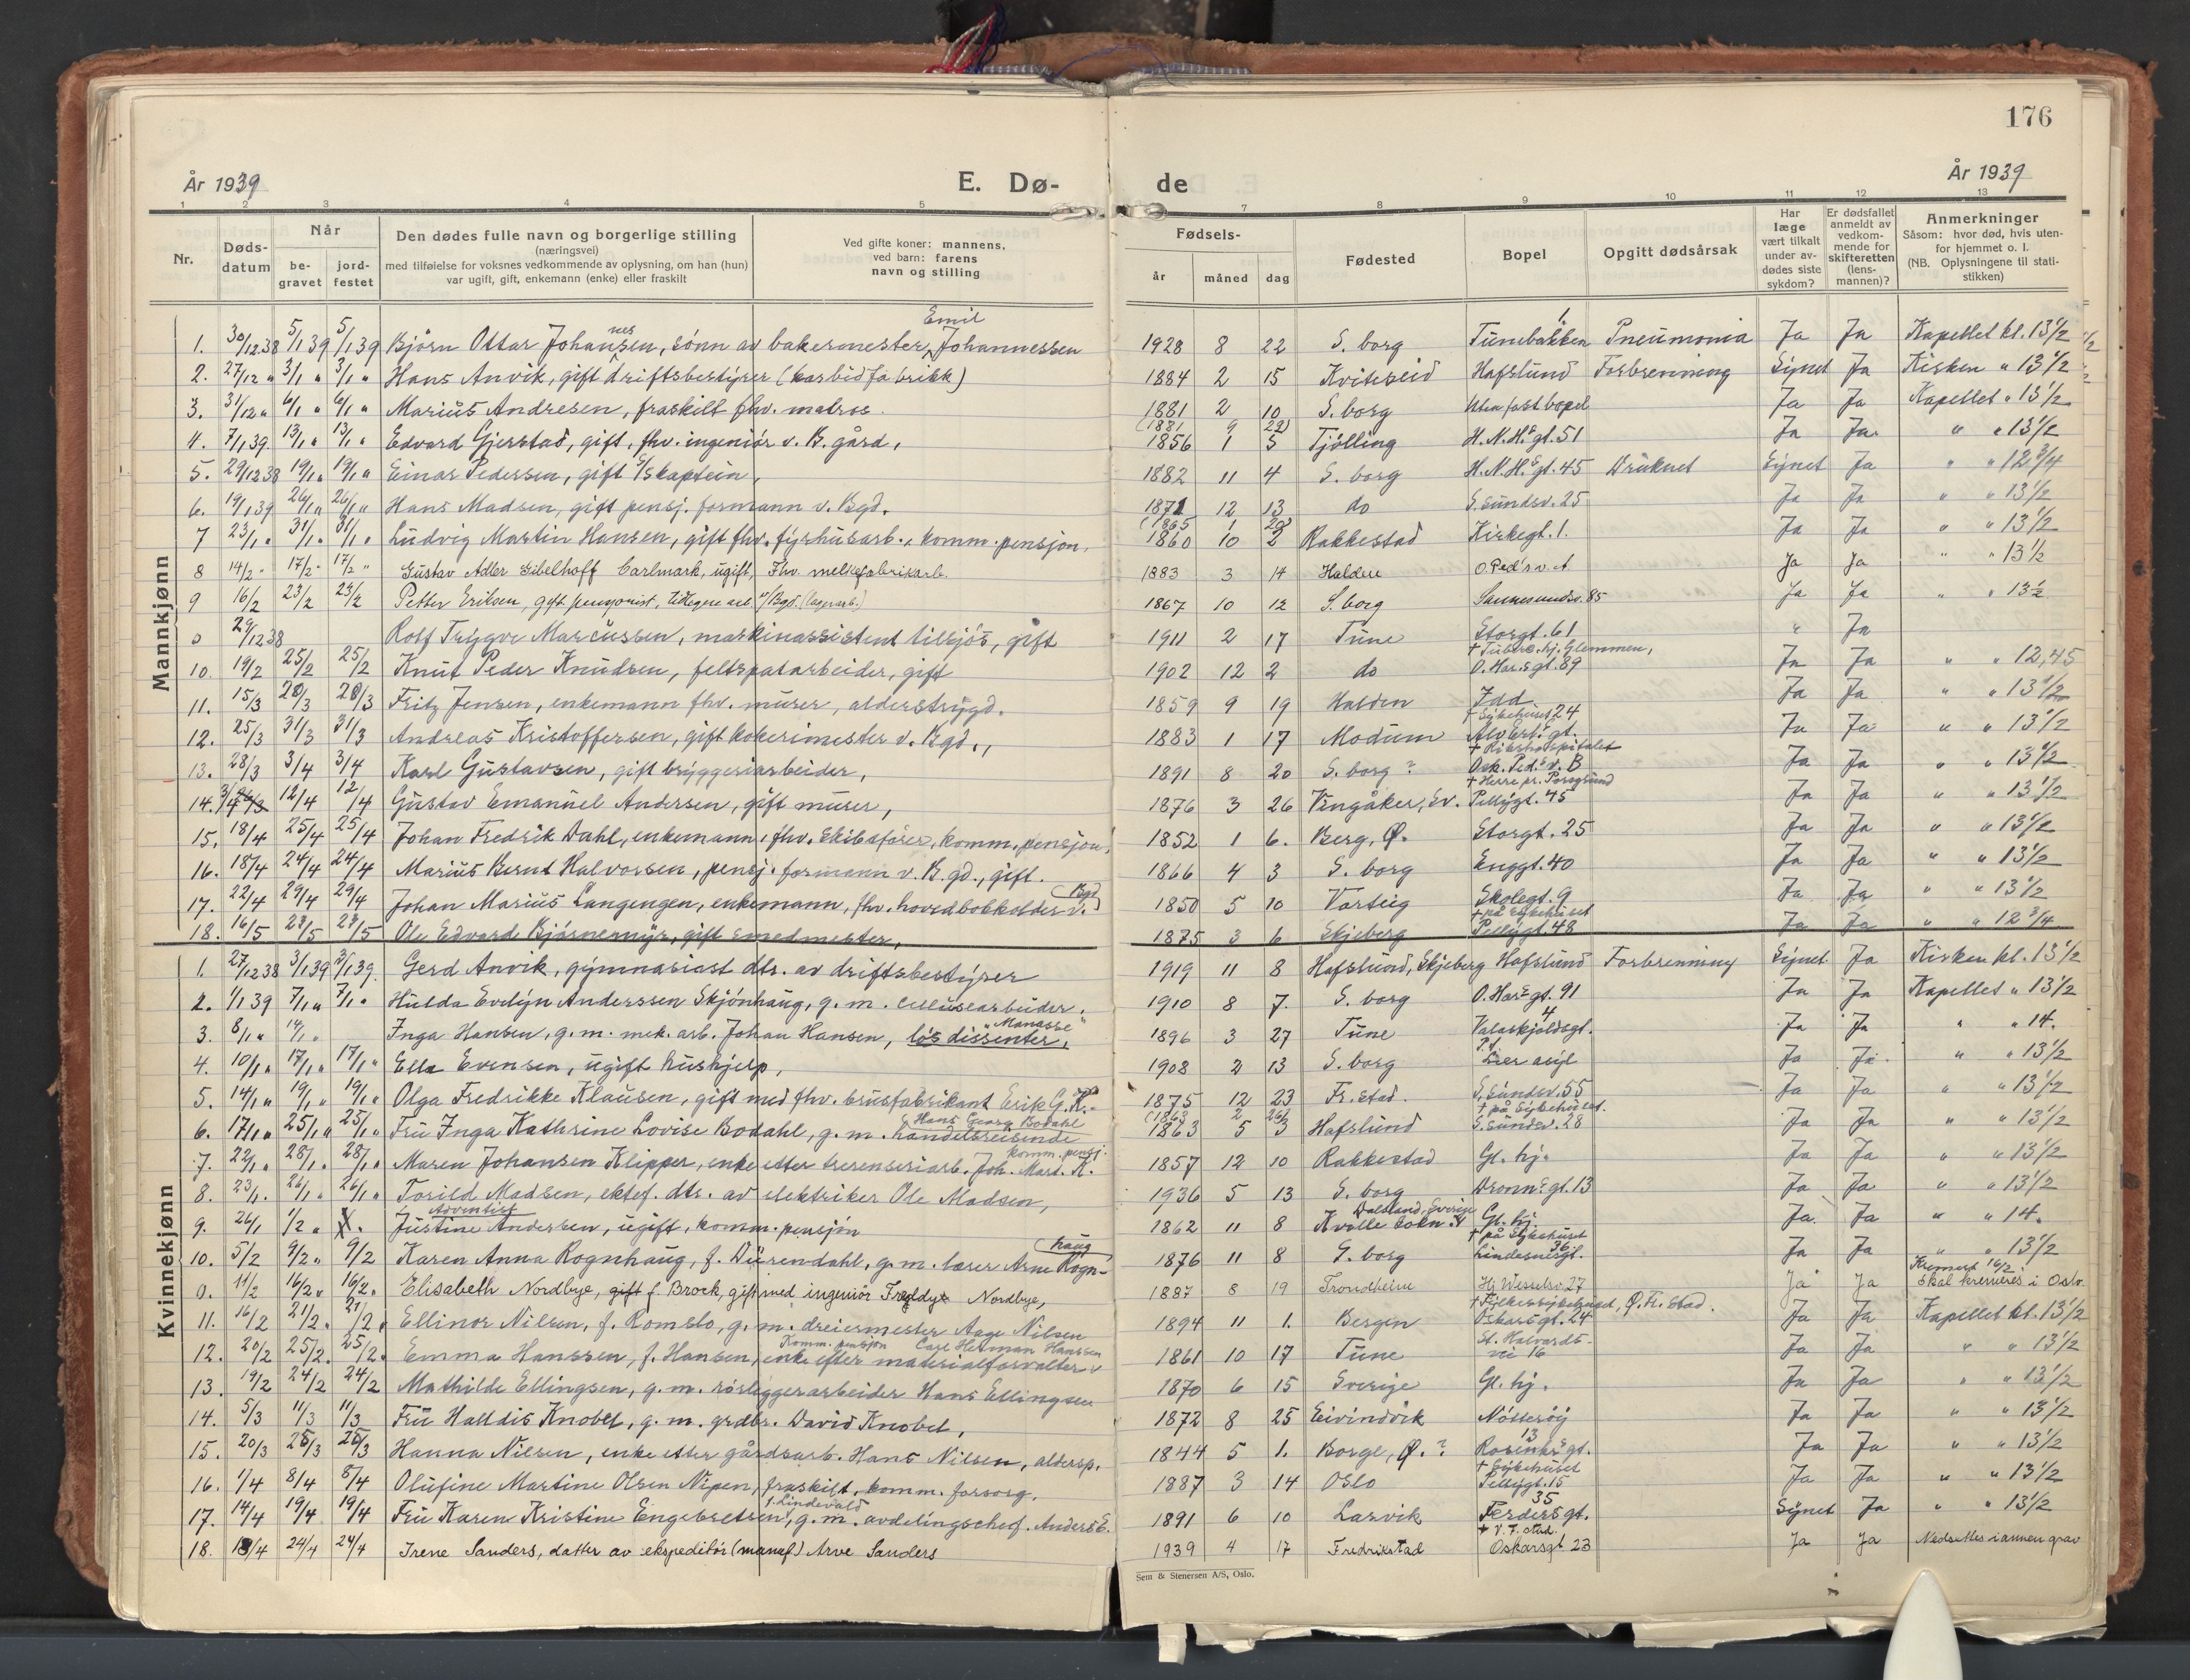 176
År 1939 E. Dø- de År 1939
1 2 3 4 5 7 8 9 10 11 12 13
Nr. Døds-datum Når be-gravet jord-festet Den dødes fulle navn og borgerlige stilling (næringsvei) med tilføielse for voksnes vedkommende av oplysning, om han (hun) var ugift, gift, enkemann (enke) eller fraskilt Ved gifte koner: mannens, ved barn: farens navn og stilling Fødsels- år måned dag Fødested Bopel Opgitt dødsårsak Har læge vært tilkalt under av-dødes siste sykdom? Er dødsfallet anmeldt av vedkom-mende for skifteretten (lens-mannen)? Anmerkninger Såsom: hvor død, hvis uten-for hjemmet o. l. (NB. Oplysningene til stati-stikken)
Mankjønn
1. 30/12 38 5/1 39 5/1 39 Bjørn Ottar Johannessen, sønn av bakermester Emil Johannessen 1928 8 22 S. borg Tunebakken 1 Pneumonia Ja Ja Kapellet kl. 13 1/2
2. 27/12 " 3/1 " 3/1 " Hans Anvik, gift driftsbestyrer (karbidfabrikk) 1884 2 15 Kviteseid Hafslund Forbrenning Synet Ja Kirken " 13 1/2
3. 31/12 " 6/1 " 6/1 " Marius Andresen, fraskilt fhv. matros. 1881 2 10 S. borg Uten fast bopel Ja Ja Kapellet " 13 1/2
4. 7/1 39. 13/1 " 13/1 " Edvard Gjerstad, gift, fhv. ingeniør v. B. gård, (1881 9 22) 1856 1 5 Tjølling H. N. H.s gt. 51 Ja Ja " " 13 1/2
5. 29/12 38 19/1 " 19/1 " Einar Pedersen, gift S/S kaptein, 1882 11 4 S. borg H. N. H.s gt. 45 Druknet Synet Ja " " 12 3/4
6. 19/1 39 26/1 " 26/1 " Hans Madsen, gift pensj. formann v. Bgd. 1871 12 13 do S. sundsv. 25 Ja Ja " " 13 1/2
7 23/1 " 31/1 " 31/1 " Ludvig Martin Hansen, gift fhv. fyrhusarb., komm. pensjon. (1865 1 20) 1860 10 2 Rakkestad Kirkegt. 1. Ja Ja " " 13 1/2
8 14/2 " 17/2 " 17/2 " Gustav Adler Gibelhoff Carlmark, ugift, Fhv. melkefabrikarb. 1883 3 14 Halden O. Ped's v. 1 Ja Ja " " 13 1/2
9 16/2 23/2 23/2 Petter Eriksen, gift pensjonist, tidligere arb. v/Bgd. (lagerarb.) 1867 10 12 S. borg Sannesundsv. 85 Ja Ja " " 13 1/2
0 29/12 38 Rolf Trygve Marcussen, maskinassistent tilsjøs, gift 1911 2 17 Tune Storgt. 61 " Ja
10. 19/2 25/2 25/2 Knut Peder Knudsen, feltspatarbeider, gift 1902 12 2 do † Tuberc. hj. Glemmen, O. Har.s gt. 89 Ja Ja " " 12,45
11. 15/3 20/3 20/3 Fritz Jensen, enkemann fhv. murer, alderstrygd. 1859 9 19 Halden Idd Ja Ja " " 13 1/2
12. 25/3 31/3 31/3 Andreas Kristoffersen, gift kokerimester v. Bgd., 1883 1 17 Modum † Sykehuset 24 Alv Erl.s gt. Ja Ja " " 13 1/2
13. 28/3 3/4 3/4 Karl Gustavsen, gift bryggeriarbeider, 1891 8 20 S. borg ? † Rikshospitalet Osk. Ped.s v. B Ja Ja " " 13 1/2
14. 3/4 12/4 12/4 Gustav Emanuel Andersen, gift murer, 1876 3 26 Vingåker, Sv. † Herre pr. Porsgrund Pellygt. 45 Ja Ja " " 13 1/2
15. 18/4 25/4 25/4 Johan Fredrik Dahl, enkemann, fhv. skibsfører, komm. pensjon. 1852 1 6. Berg, Ø. Storgt. 25 Ja Ja " " 13 1/2
16. 18/4 24/4 24/4 Marius Bernt Halvorsen, pensj. formann v. B. gd., gift. 1866 4 3 S. borg Enggt. 40 Ja Ja " " 13 1/2
17. 22/4 29/4 29/4 Johan Marius Langengen, enkemann, fhv. hovedbokholder v. Bgd. 1850 5 10 Varteig Skolegt. 9 Ja Ja " " 13 1/2
18. 16/5 23/5 23/5 Ole Edvard Bjørnemyr, gift smedmester, 1875 3 6 Skjeberg † på sykehuset Pellygt. 48 Ja Ja " " 12 3/4
Kvinnekjønn
1. 27/12 38 3/1 39 3/1 39. Gerd Anvik, gymnasiast dtr. av driftsbestyrer 1919 11 8 Hafslund, Skjeberg Hafslund Forbrenning Synet Ja Kirken kl. 13 1/2
2. 1/1 39 7/1 " 7/1 " Hulda Evelyn Anderssen Skjønhaug, g. m. cellulsearbeider. 1910 8 7. S. borg O. Har.s gt. 91 Ja Ja Kapellet " 13 1/2
3. 8/1 " 14/1 " Inga Hansen, g. m. mek. arb. Johan Hansen, "Manasse" løs dissenter, 1896 3 27 Tune Valaskjoldsgt. 4 Ja Ja " " 14.
4. 10/1 " 17/1 " 17/1 " Ella Evensen, ugift hushjelp, 1908 2 13 S. borg Lier asyl Ja Ja " " 13 1/2
5. 14/1 " 19/1 " 19/1 " Olga Fredrikke Klausen, gift med fhv. brusfabrikant Erik G. K.- 1875 12 23 Fr.stad. S. sundsv. 55 Ja Ja " " 13 1/2
6. 17/1 " 25/1 " 25/1 " Fru Inga Kathrine Lovise Bodahl, g. m. Hans Georg Bodahl handelsreisende (1863 2 26) 1863 5 3 Hafslund † på Sykehuset. S. sundsv. 28 Ja Ja " " 13 1/2
7. 22/1 " 28/1 " 28/1 " Maren Johansen Klipper, enke etter trerenseriarb. Joh. Mart. K. komm. pensj. 1857 12 10 Rakkestad Gl. hj. Ja Ja " " 13 1/2
8. 23/1. 26/1 " 26/1 " Torild Madsen, ektef. dtr. av elektriker Ole Madsen, 1936 5 13 S. borg Dronn.s gt. 13 Ja Ja " " 13 1/2
9. 26/1 1/2 " X. Adventist Justine Andersen, ugift, komm. pensjon 1862 11 8 Dalsland, Sverige Kville sokn Gl. hj. Ja Ja " " 14.
10. 5/2 9/2 " 9/2 Karen Anna Rognhaug, f. Dürendahl, g. m. lærer Arne Rogn-haug 1876 11 8 S. borg † på Sykehuset Lindesnesgt. 36 Ja Ja " " 13 1/2
0. 11/2 16/2 " 16/2 " Elisabeth Nordbye, gift f. Brock, gift med ingeniør Nordbye, 1887 8 19 Trondheim Hj Wesselsv. 27 Ja Ja Kremert 16/2 Skal kremeres i Oslo.
11. 16/2 21/2 " 21/2 " Ellinor Nilsen, f. Romslo, g. m. dreiermester Aage Nilsen 1894 11 1. Bergen † Fylkessykehuset, Ø. Fr.stad. Oskarsgt. 24 Ja Ja Kapellet kl. 13 1/2
12. 20/2 25/2 " 25/2 " Emma Hanssen, f. Hansen, Komm. pensjon enke efter materialforvalter Carl Herman Hanssen 1861 10 17 Tune St. Halvards- vei 16 Ja Ja " " 13 1/2
13. 19/2 24/2 24/2 Mathilde Ellingsen, g. m. rørleggerarbeider Hans Ellingsen 1870 6 15 Sverige Gl. hj. Ja Ja " " 13 1/2
14. 5/3 11/3 11/3 Fru Halldis Knobel, g. m. grdbr. David Knobel, 1872 8 25 Eivindvik Nøtterøy Ja Ja " " 13 1/2
15. 20/3 25/3 25/3 Hanna Nilsen, enke etter gårdsarb. Hans Nilsen, aldersp. 1844 5 1. Borge, Ø. ? Rosenkr.s gt. 13 Ja Ja " " 13 1/2
16. 1/4 8/4 8/4 Olufine Martine Olsen Nipen, fraskilt, komm. forsorg. 1887 3 14 Oslo † Sykehuset Pellygt. 15 Ja Ja " " 13 1/2
17. 14/4 19/4 19/4 Fru Karen Kristine Engebretsen, f. Lindevald g. m. avdelingschef. Anders E. 1891 6 10 Larvik Ferdersgt. 35 Synet Ja " " 13 1/2
18. 18/4 24/4 24/4 Irene Sanders, datter av ekspeditør (manuf) Arve Sanders 1939 4 17 Fredrikstad † V. F. stad. Oskarsgt 23 Ja Ja Nedsettes i annen grav
Sem & Stenersen A/S, Oslo.